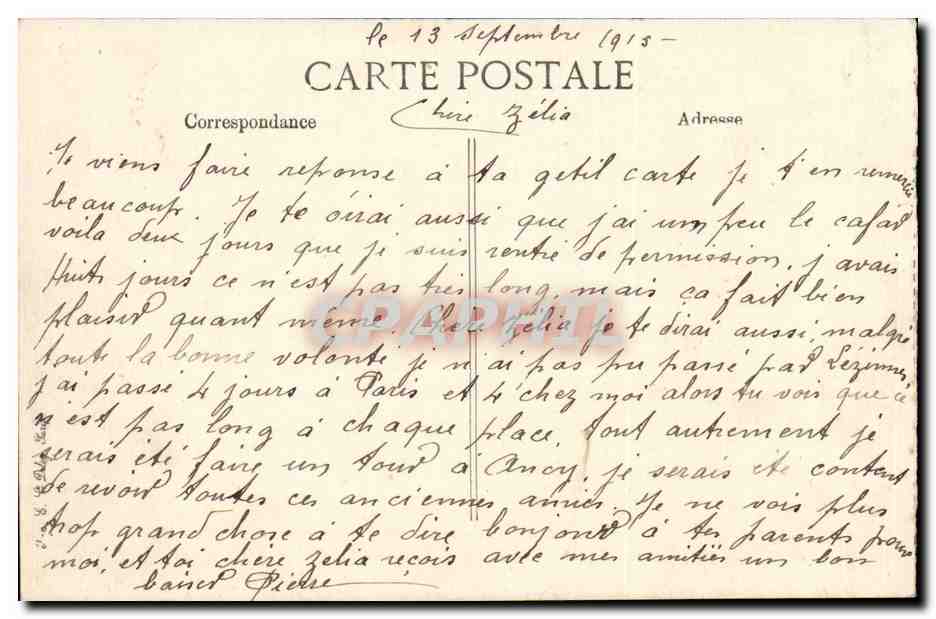 le 13 septembre 1915 -
CARTE POSTALE
Correspondance
Chère Zélia
Adresse
Je viens faire reponse à ta getil carte je t'en remercie
beaucoup. Je te dirai aussi que j'ai un peu le cafad
voila deux jours que je suis rentré de permission. j avais
Huit jours ce n'est pas très long, mais ça fait bien
plaisir quant même. Chère Zélia je te dirai aussi, malgré
toute la bonne volonté je n'ai pas pu passé par Lézinnes,
j'ai passé 4 jours à Paris et 4 chez moi alors tu vois que ce
n'est pas long à chaque place, tout autrement je
serais été faire un tour à Ancy, je serais été content
de revoir toutes ces anciennes amies. Je ne vois plus
trop grand chose à te dire bonjour à tes parents pour
moi, et toi chère Zelia reçois avec mes amitiés un bon
baiser Pierre
CPAPHIL